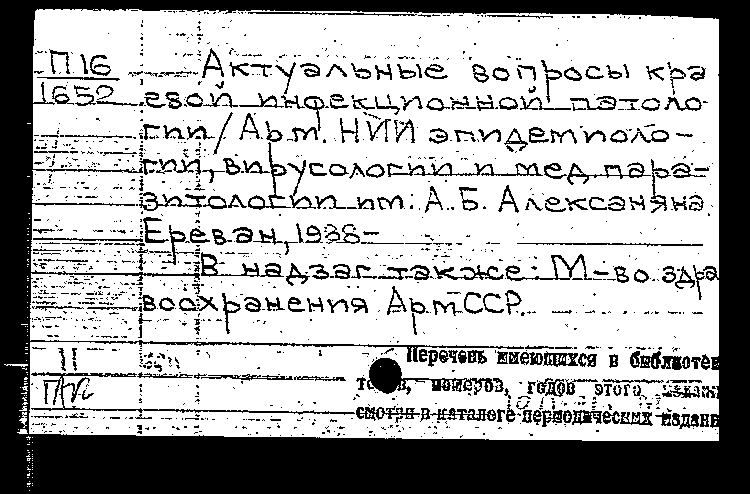 П16
1652
Актуальные вопросы кра
евой инфекционной патоло-
гии / Арм. НИИ эпидемиоло-
гии, вирусологии и мед. пара-
зитологии им. А.Б. Алексаняна.
Ереван, 1938-
В надзаг также: М-во здра
воохранения АрмССР.
11
Перечень имеющихся в библиотек
смотри в каталоге периодических издани
годов этого